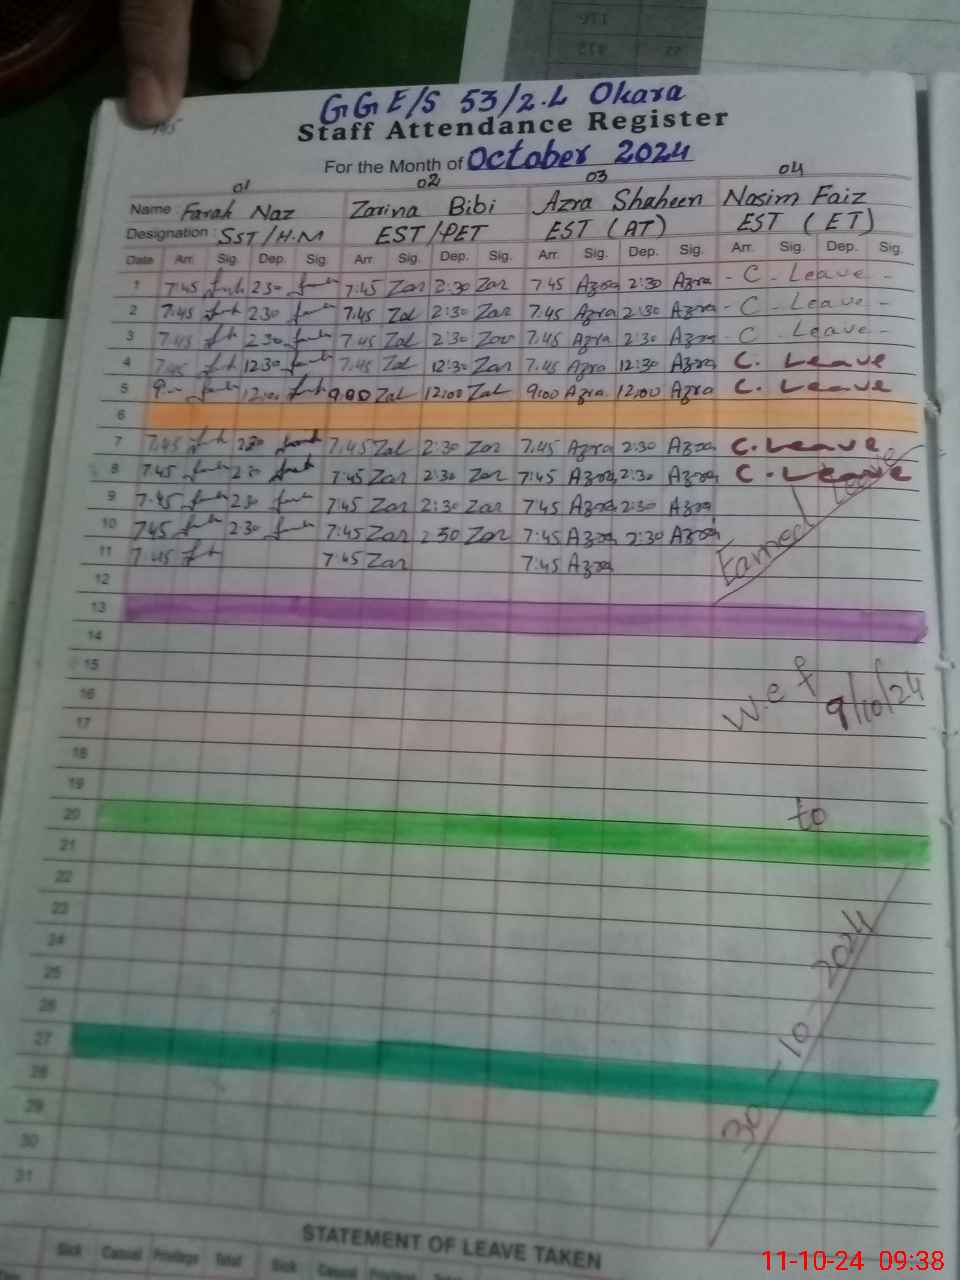 GGE/S 53/2.L Okara
Staff Attendance Register
For the Month of October 2024
01 02 03 04
Name Farah Naz Zarina Bibi Azra Shaheen Nasim Faiz
Designation : SST/H.M EST/PET EST (AT) EST (ET)
Date Arr. Sig. Dep. Sig. Arr. Sig. Dep. Sig. Arr. Sig. Dep. Sig. Arr. Sig. Dep. Sig.
1 7:45 2 30 7:45 Zar 2:30 Zar 7 45 Azra 2:30 Azra - C - Leave -
2 7:45 2 30 7:45 Zal 2:30 Zar 7.45 Azra 2:30 Azra - C - Leave -
3 7:45 2 30 7:45 Zal 2:30 Zar 7.45 Azra 2:30 Azra - C . Leave -
4 7:45 12:30 7:45 Zal 12:30 Zar 7.45 Azra 12:30 Azra C. Leave
5 12:00 9.00 Zal 12:00 Zal 9:00 Azra 12:00 Azra C. Leave
6
7 7:45 2:30 7:45 Zal 2:30 Zar 7:45 Azra 2:30 Azra C. Leave
8 7:45 7:45 Zar 2:30 Zar 7:45 Azra 2:30 Azra C. Leave
9 7:45 2:30 7:45 Zar 2:30 Zar 7:45 Azra 2:30 Azra
10 7:45 2:30 7:45 Zar 2 30 Zar 7:45 Azra 2:30 Azra
Earned Leave
11 7:45 7:45 Zar 7:45 Azra
12
13
14
15
16
w.e.f 9/10/24
17
18
19
20
to
21
22
23
24
25
26
27
28
29
30
31
30-10-2024
STATEMENT OF LEAVE TAKEN
Sick Casual Privilege Total Sick Casual Privilege
11-10-24 09:38